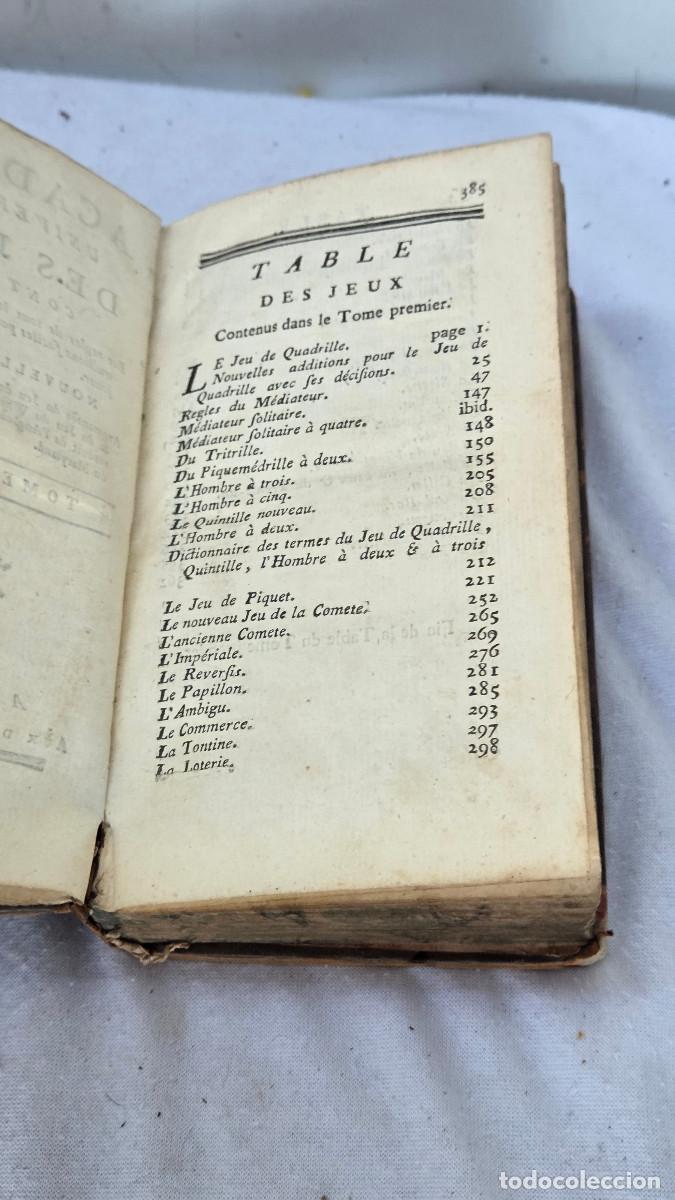 ACAD
UNIVER
DES J
CONT
NOUVELL
TOME
A
385
TABLE
DES JEUX
Contenus dans le Tome premier.
LE Jeu de Quadrille. page 1.
Nouvelles additions pour le Jeu de
Quadrille avec ſes déciſions. 25
Regles du Médiateur. 47
Médiateur ſolitaire. 147
Médiateur ſolitaire à quatre. ibid.
Du Tritrille. 148
Du Piquemédrille à deux. 150
L'Hombre à trois. 155
L'Hombre à cinq. 205
Le Quintille nouveau. 208
L'Hombre à deux. 211
Dictionnaire des termes du Jeu de Quadrille,
Quintille, l'Hombre à deux & à trois
212
Le Jeu de Piquet. 221
Le nouveau Jeu de la Comete. 252
L'ancienne Comete. 265
L'Impériale. 269
Le Reverſis. 276
Le Papillon. 281
L'Ambigu. 285
Le Commerce. 293
La Tontine. 297
La Loterie. 298
todocoleccion